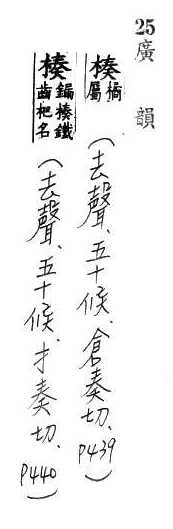 25廣韻
楱 橘屬(去聲、五十候、倉奏切、P439)
楱 鍽楱鐵齒杷名(去聲、五十候、才奏切、P440)